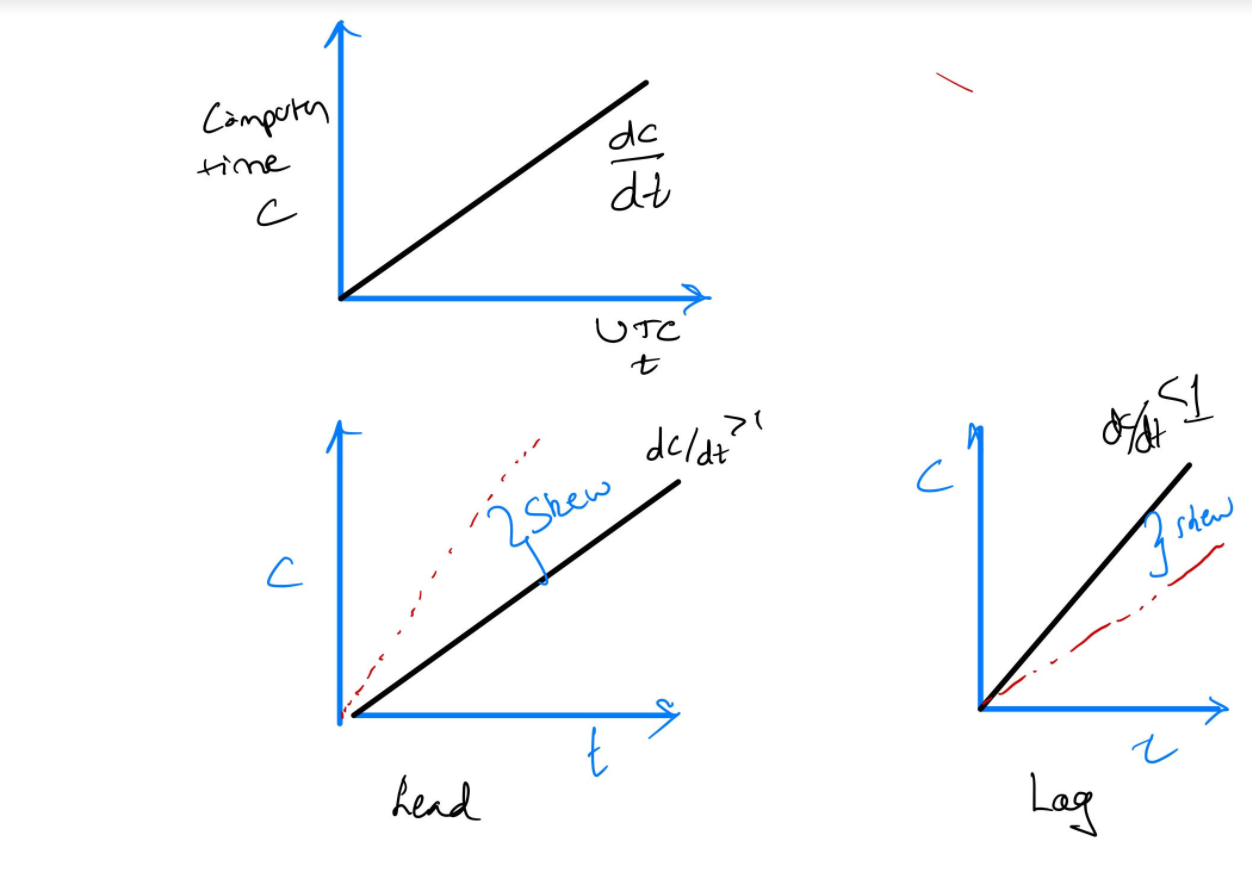 Computer
time
C
dc
dt
UTC
t
dc/dt >1
Skew
C
t
Lead
dc/dt <1
C
skew
t
Lag